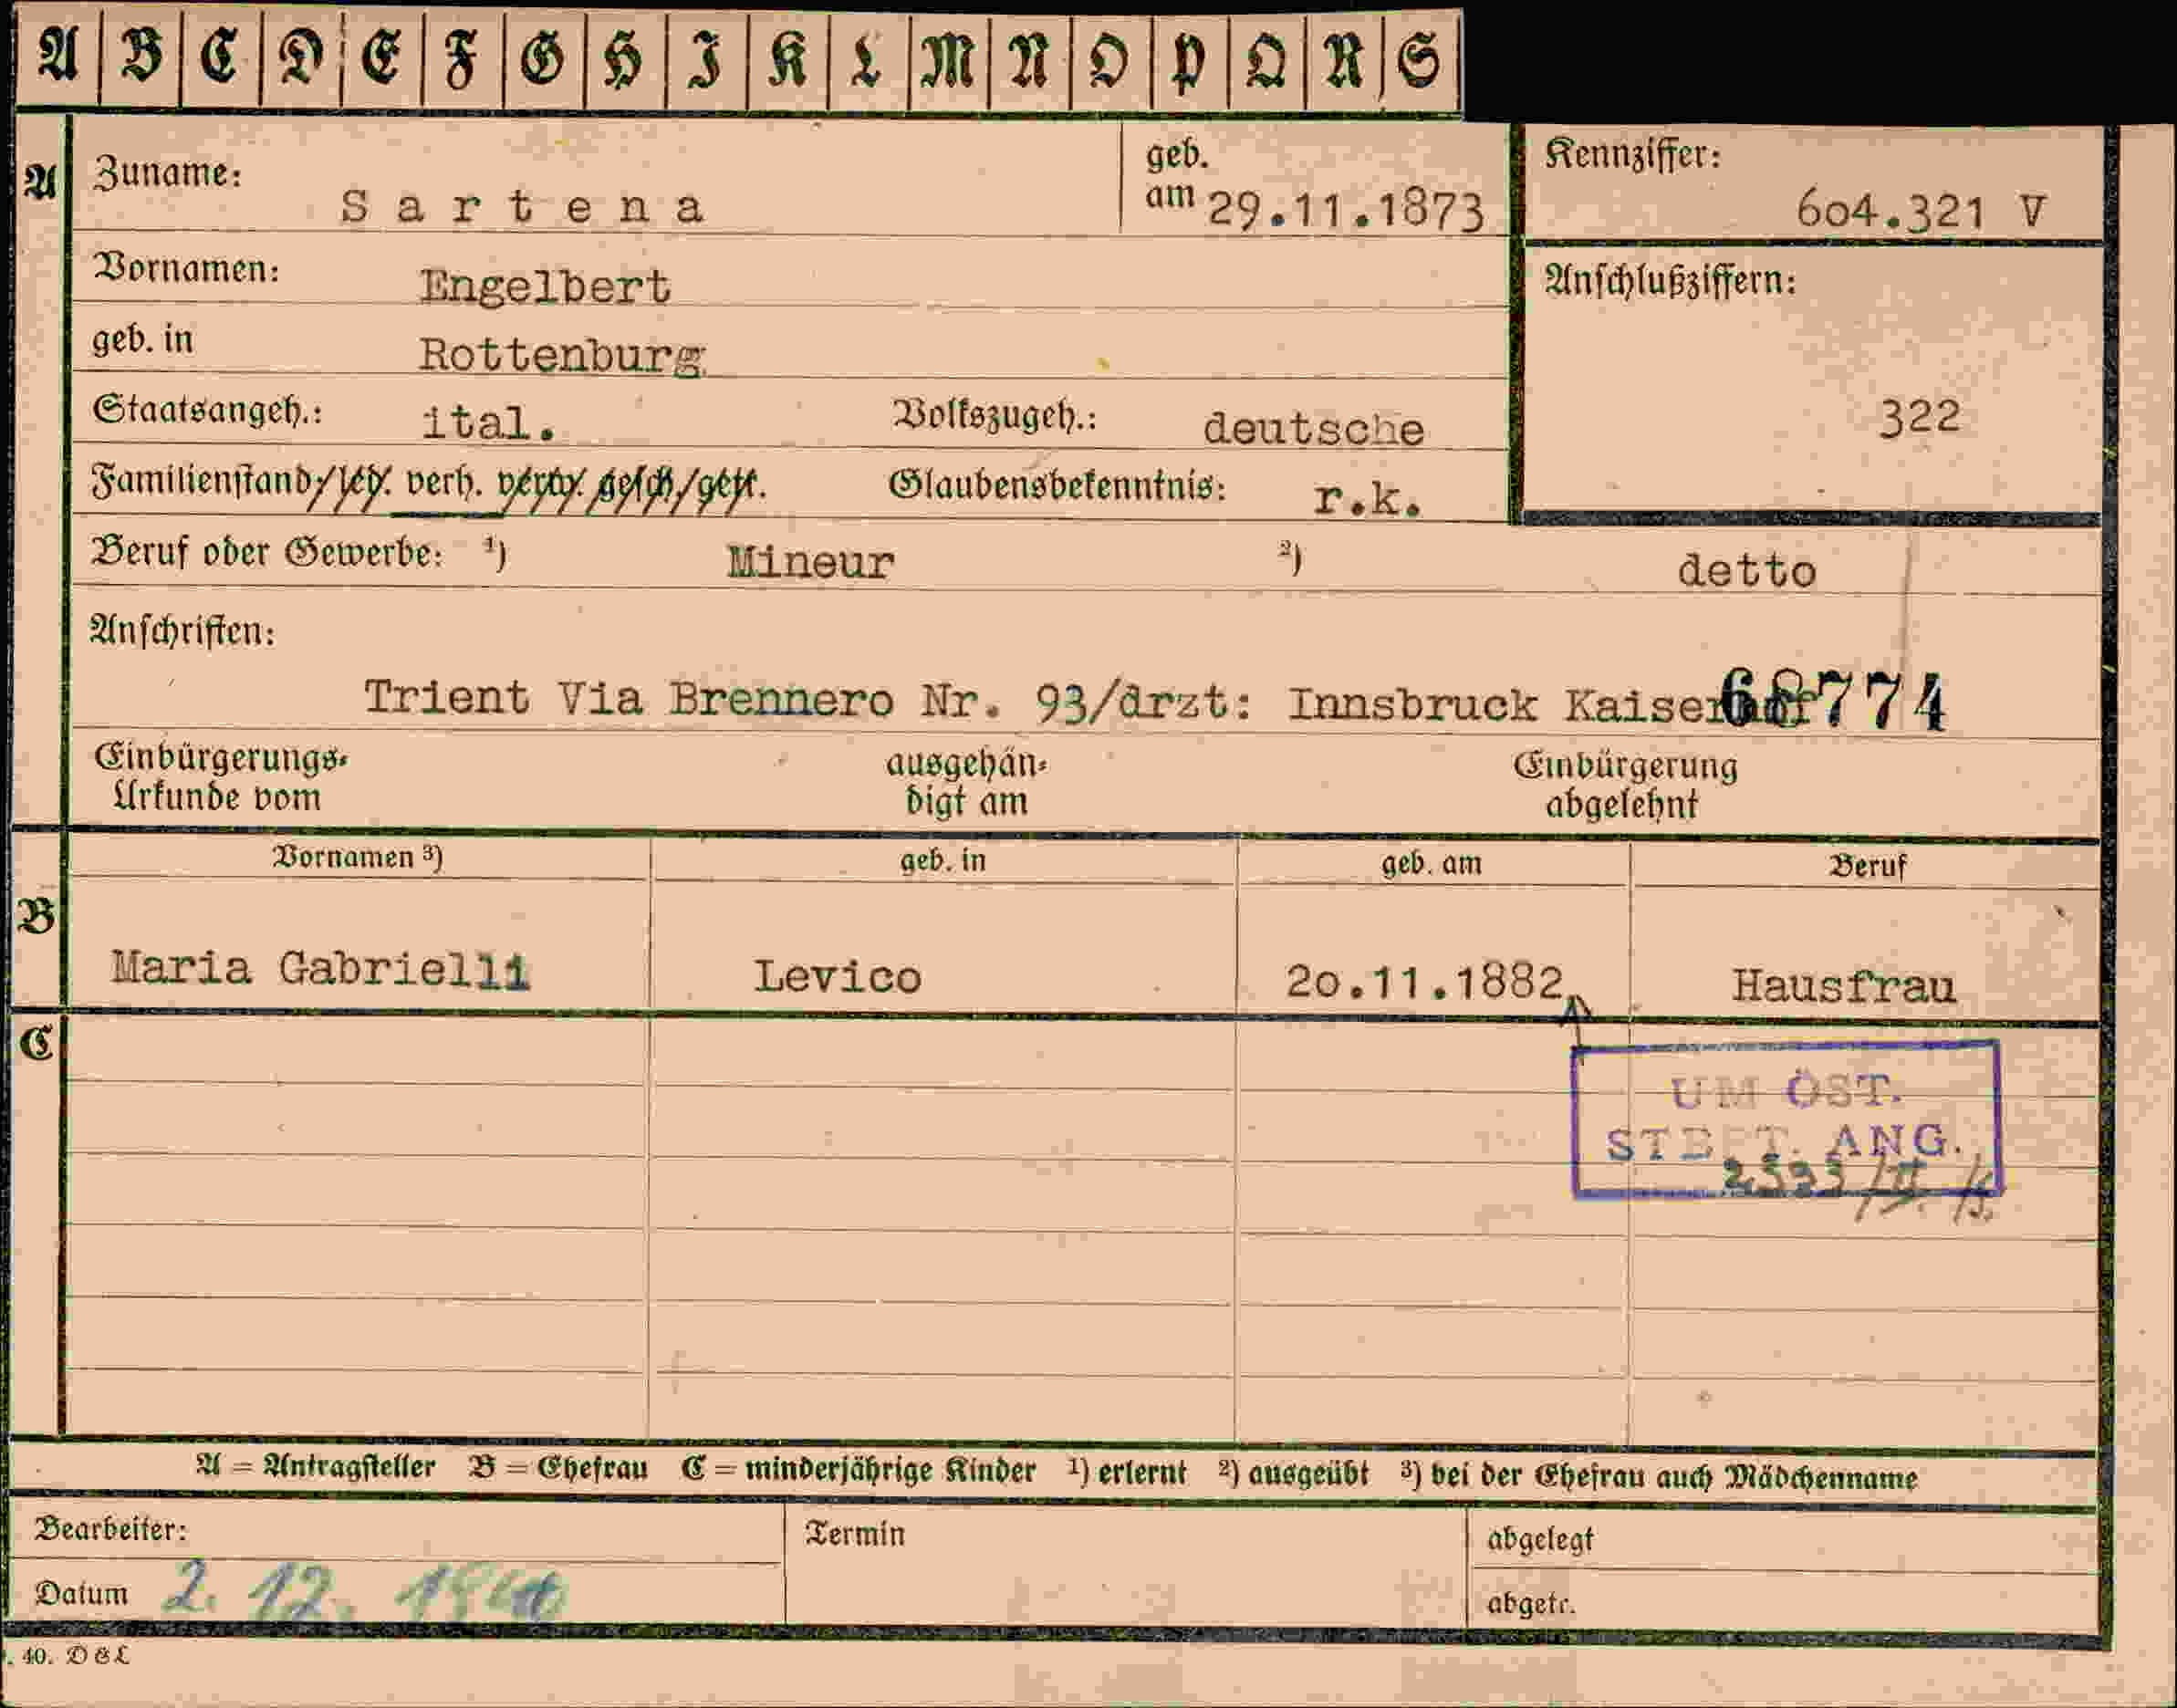 A B C D E F G H I K L M N O P Q R S
A Zuname: Sartena geb. am 29.11.1873 Kennziffer: 604.321 V
Vornamen: Engelbert Anschlußziffern:
geb. in Rottenburg
Staatsangeh.: ital. Volkszugeh.: deutsche 322
Familienstand: led. verh. verw. gesch. getr. Glaubensbekenntnis: r.k.
Beruf oder Gewerbe: ¹) Mineur ²) detto
Anschriften:
Trient Via Brennero Nr. 93/drzt: Innsbruck 68774
Einbürgerungs- ausgehän- Einbürgerung
Urkunde vom digt am abgelehnt
Vornamen ³) geb. in geb. am Beruf
B
Maria Gabrielli Levico 20.11.1882 Hausfrau
C
UM ÖST.
STBFT. ANG.
A = Antragsteller B = Ehefrau C = minderjährige Kinder ¹) erlernt ²) ausgeübt ³) bei der Ehefrau auch Mädchenname
Bearbeiter: Termin abgelegt
Datum 2. 12. 1940 abgetr.
. 40. D & L